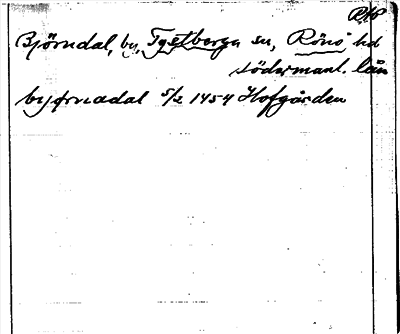 Björndal, by, Tystberga sn, Rönö hd
Södermanl. län
byørnadal 5/2 1454 Hofgården